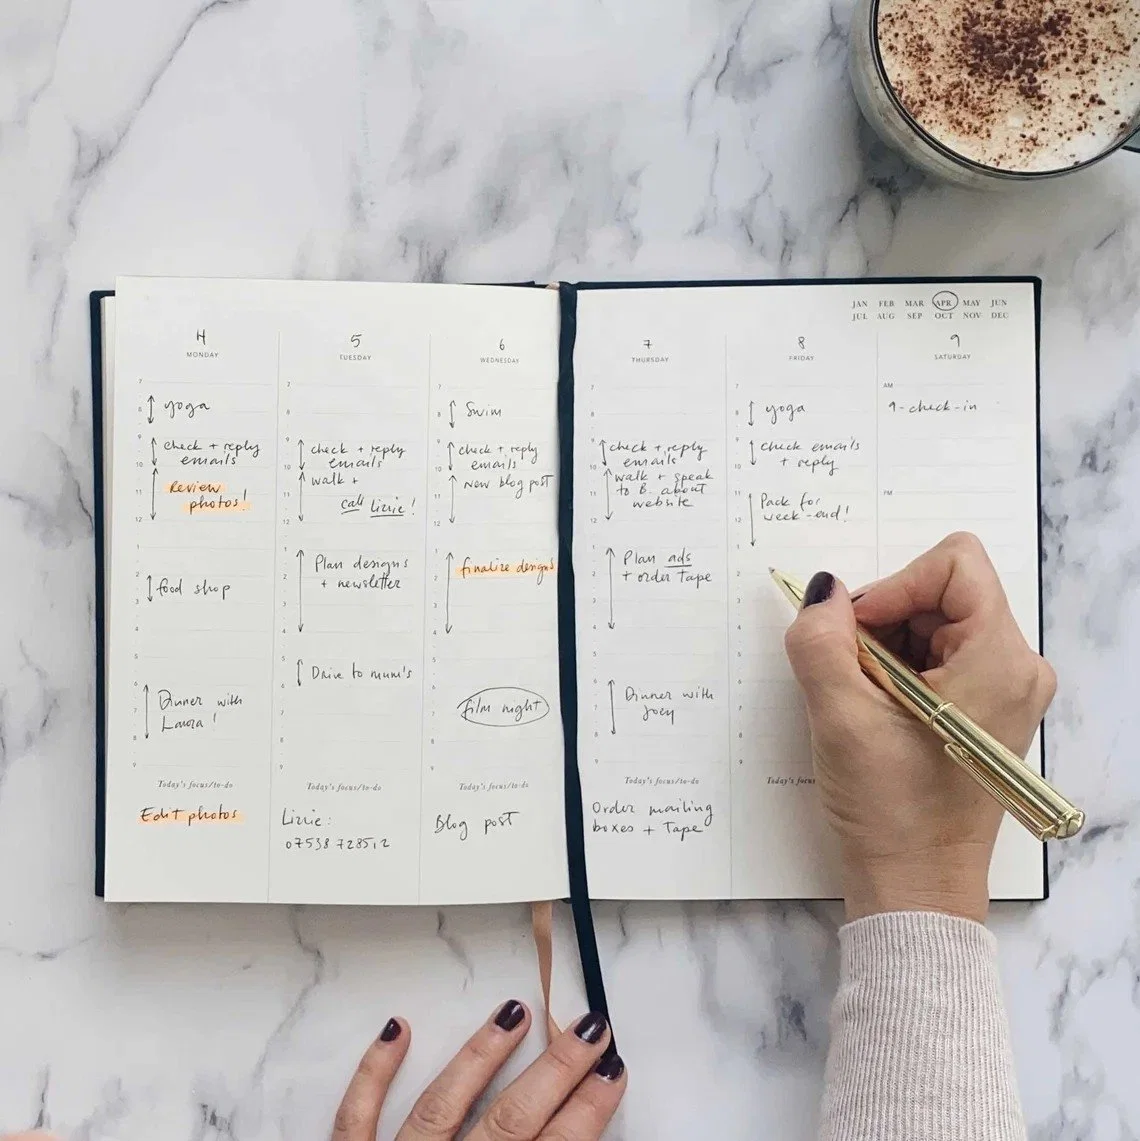 JAN FEB MAR APR MAY JUN
JUL AUG SEP OCT NOV DEC
4
MONDAY
7
8
yoga
9
check + reply
emails
10
Review
photos!
11
12
1
2
food shop
3
4
5
6
Dinner with
Laura!
7
8
9
Today's focus/to-do
Edit photos
5
TUESDAY
7
8
9
check + reply
emails
10
walk +
call Lizzie!
11
12
1
Plan designs
+ newsletter
2
3
4
5
Drive to mum's
6
7
8
9
Today's focus/to-do
Lizzie:
6
WEDNESDAY
7
8
Swim
9
check + reply
emails
10
New blog post
11
12
1
finalize designs
2
3
4
5
6
film night
7
8
9
Today's focus/to-do
Blog post
7
THURSDAY
7
8
9
check + reply
emails
10
walk + speak
to B. about
website
11
12
1
Plan ads
+ order tape
2
3
4
5
6
Dinner with
Joey
7
8
9
Today's focus/to-do
Order mailing
boxes + Tape
8
FRIDAY
7
8
yoga
9
check emails
+ reply
10
11
Pack for
week-end!
12
1
2
3
4
5
6
7
8
9
Today's focus
9
SATURDAY
AM
9-check-in
PM